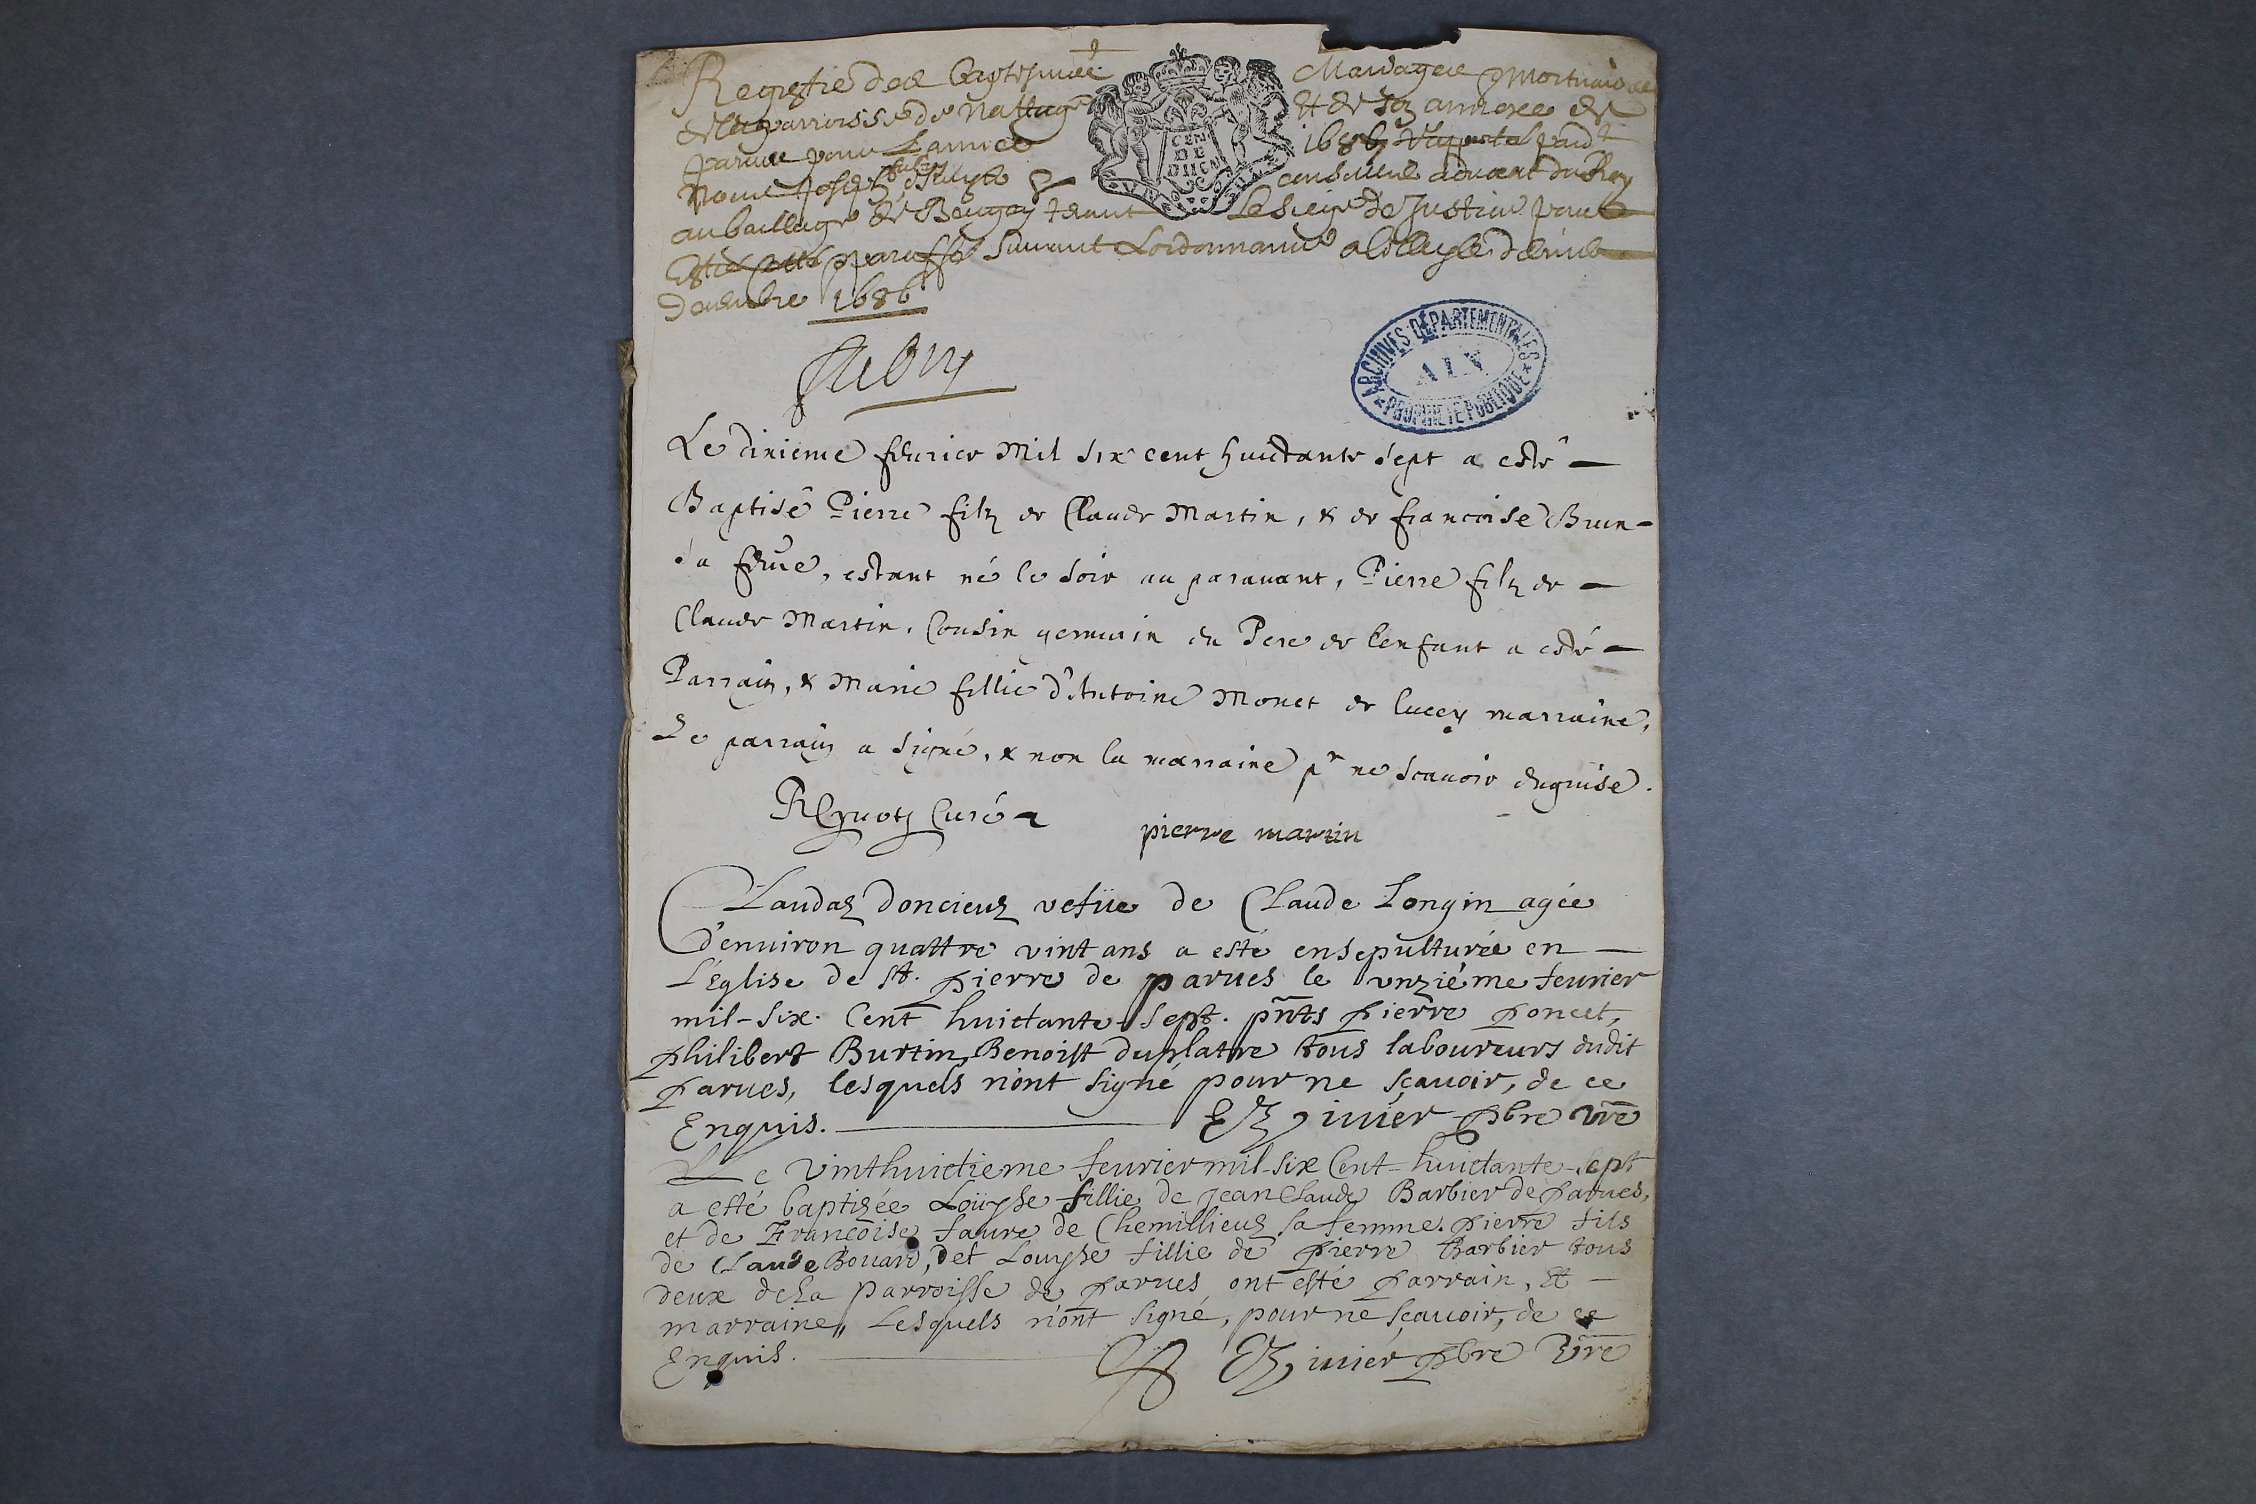 Registre des Baptesmes Mariages Mortuaires
de la parroisse de Nattage Et de son annexe de
parves pour L'année 1687
Nous Joseph conseiller advocat du Roy
au bailliage de Beugey tenant Le siege de Justice
paraffé suivant Lordonnance a Belley le
decembre 1686
CEN
DE
DIICN
ARCHIVES DÉPARTEMENTALES
AIN
PROPRIÉTÉ PUBLIQUE
Le dixieme feurier Mil six cent huictante sept a esté
Baptisé Pierre filz de Claude Martin, & de francoise Brun
sa feme, estant né le soir au parauant, Pierre filz de
Claude Martin, Cousin germain du Pere de l'enfant a esté
Parrain, & Marie fillie d'Antoine Monet de lucey marraine,
Le parrain a signé, & non la marraine pr ne scauoir enquise.
Curé
pierre martin
Claudaz doncieuz vefüe de Claude Longin agée
d'enuiron quattre vint ans a esté ensepulturée en
L'Église de St. pierre de parues le vnziéme feurier
mil-six. Cent huictante-sept. pnts pierre poncet,
philibert Burtin, Benoist duplatre tous laboureurs dudit
parues, lesquels n'ont signé pour ne sçauoir, de ce
Enquis. pbre vre
Le vinthuictieme feurier mil-six Cent-huictante-sept
a esté baptizée Loüyse fillie de jean Claude Barbier de parues,
et de Françoise faure de Chemillieuz sa femme. pierre fils
de Claude Bouard, et Louyse fillie de pierre Barbier tous
deux de La parroisse de parues ont esté parrain, Et
marraine,, Lesquels n'ont signé, pour ne sçauoir, de ce
Enquis. pbre vre